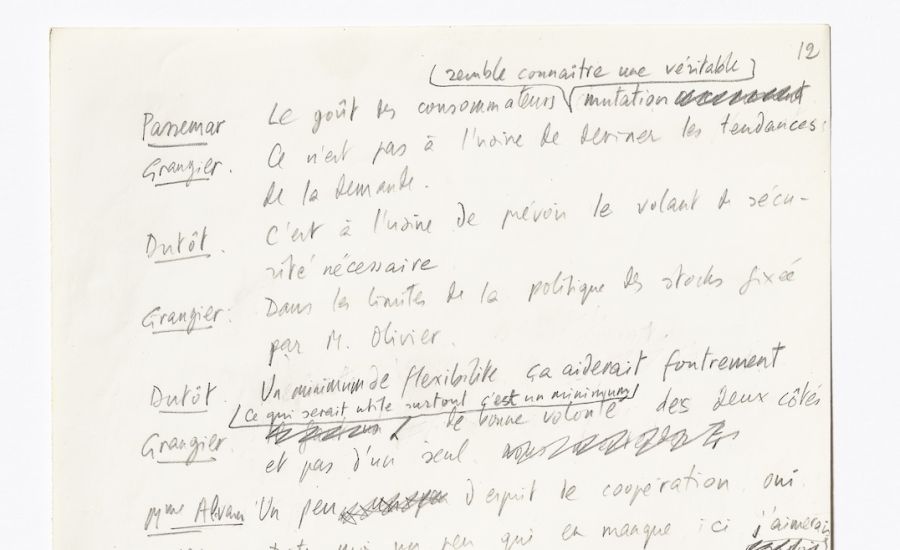 12
semble connaître une véritable
Passemar Le goût des consommateurs mutation
Grangier. Ce n'est pas à l'usine de deviner les tendances
de la demande.
Dutôt. C'est à l'usine de prévoir le volant de sécu-
rité nécessaire
Grangier: Dans les limites de la politique des stocks fixée
par M. Olivier.
Dutôt. Un minimum de flexibilité ça aiderait foutrement
Ce qui serait utile surtout c'est un minimum
Grangier. de bonne volonté des deux côtés
et pas d'un seul.
Mme Alvan Un peu d'esprit de coopération oui
un peu qui en manque ici j'aimerais